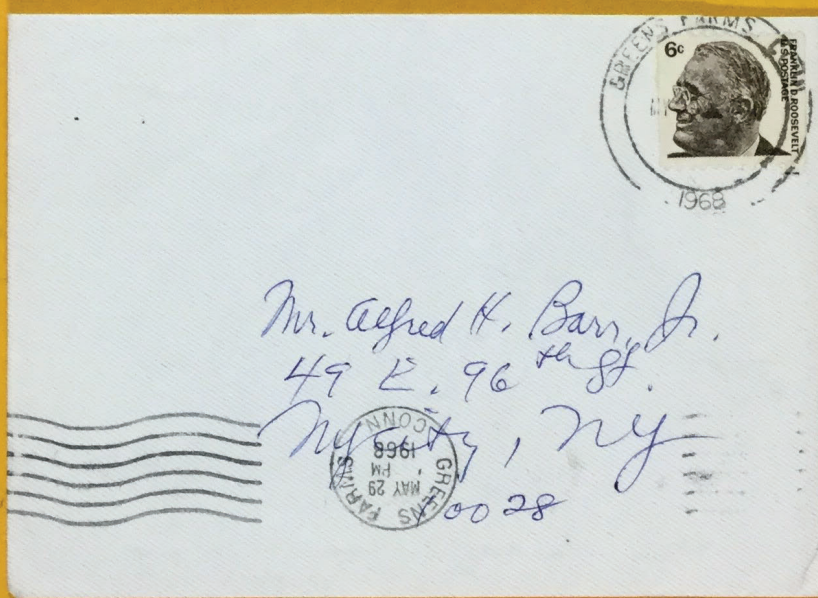 GREENS FARMS,
6c
FRANKLIN D. ROOSEVELT
U.S. POSTAGE
1968
Mr. Alfred H. Barr, Jr.
49 E. 96th St.
NY City, NY
10028
GREENS FARMS
MAY 29
PM
1968
CONN